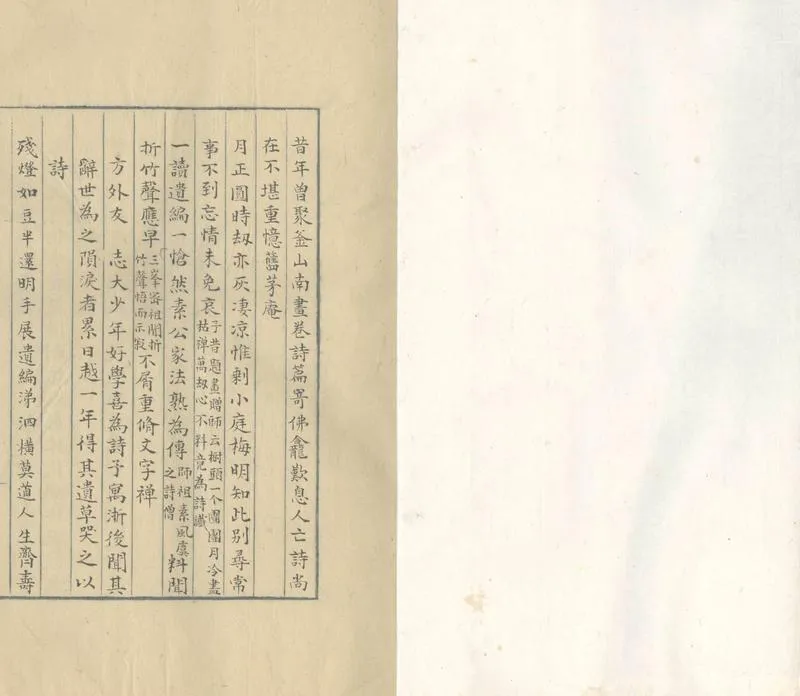 昔年曾聚釜山南畫卷詩篇寄佛龕歎息人亡詩尚
在不堪重憶舊茅庵
月正圓時刼亦灰淒凉惟剩小庭梅明知此别尋常
事不到忘情未免哀予昔題畫贈師云樹頭一个團團月冷盡枯禪萬刼心不料竟為詩讖
一讀遺編一愴然素公家法熟為傳師祖素風虞之詩僧料聞
折竹聲應早三峯密祖聞折竹聲悟而示寂不屑重脩文字禪
方外友 志大少年好學喜為詩予寓浙後聞其
辭世為之隕淚者累日越一年得其遺草哭之以
詩
殘燈如豆半還明手展遺編涕泗橫莫道人生齊壽